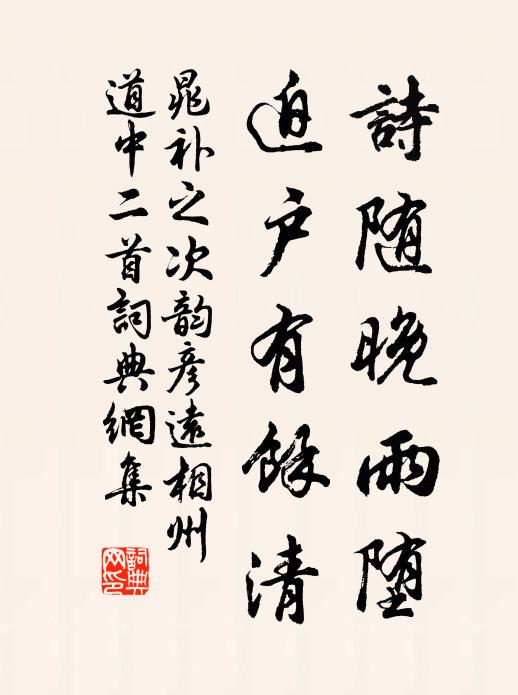 詩随晚雨堕
迫户有餘清
晁补之次韵彦遠相州
道中二首詞典網集
詞典网印